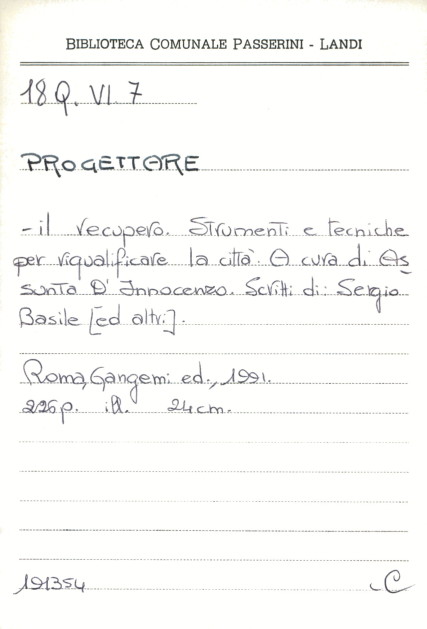 BIBLIOTECA COMUNALE PASSERINI - LANDI
18 Q. VI. 7
PROGETTARE
- il recupero. Strumenti e tecniche
per riqualificare la città. A cura di As
sunta D'Innocenzo. Scritti di: Sergio
Basile [ed altri].
Roma, Gangemi ed., 1991.
226 p. ill. 24 cm.
191354 C